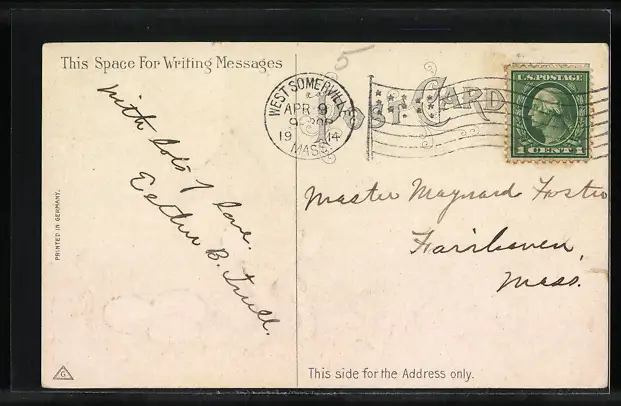 This Space For Writing Messages
5
WEST SOMERVILLE
APR 9
9-30P
1914
MASS.
POST CARD
U.S. POSTAGE
1 CENT 1
with lots of love.
Esther B. Truell.
Master Maynard Foster
Fairhaven,
Mass.
PRINTED IN GERMANY.
G
This side for the Address only.